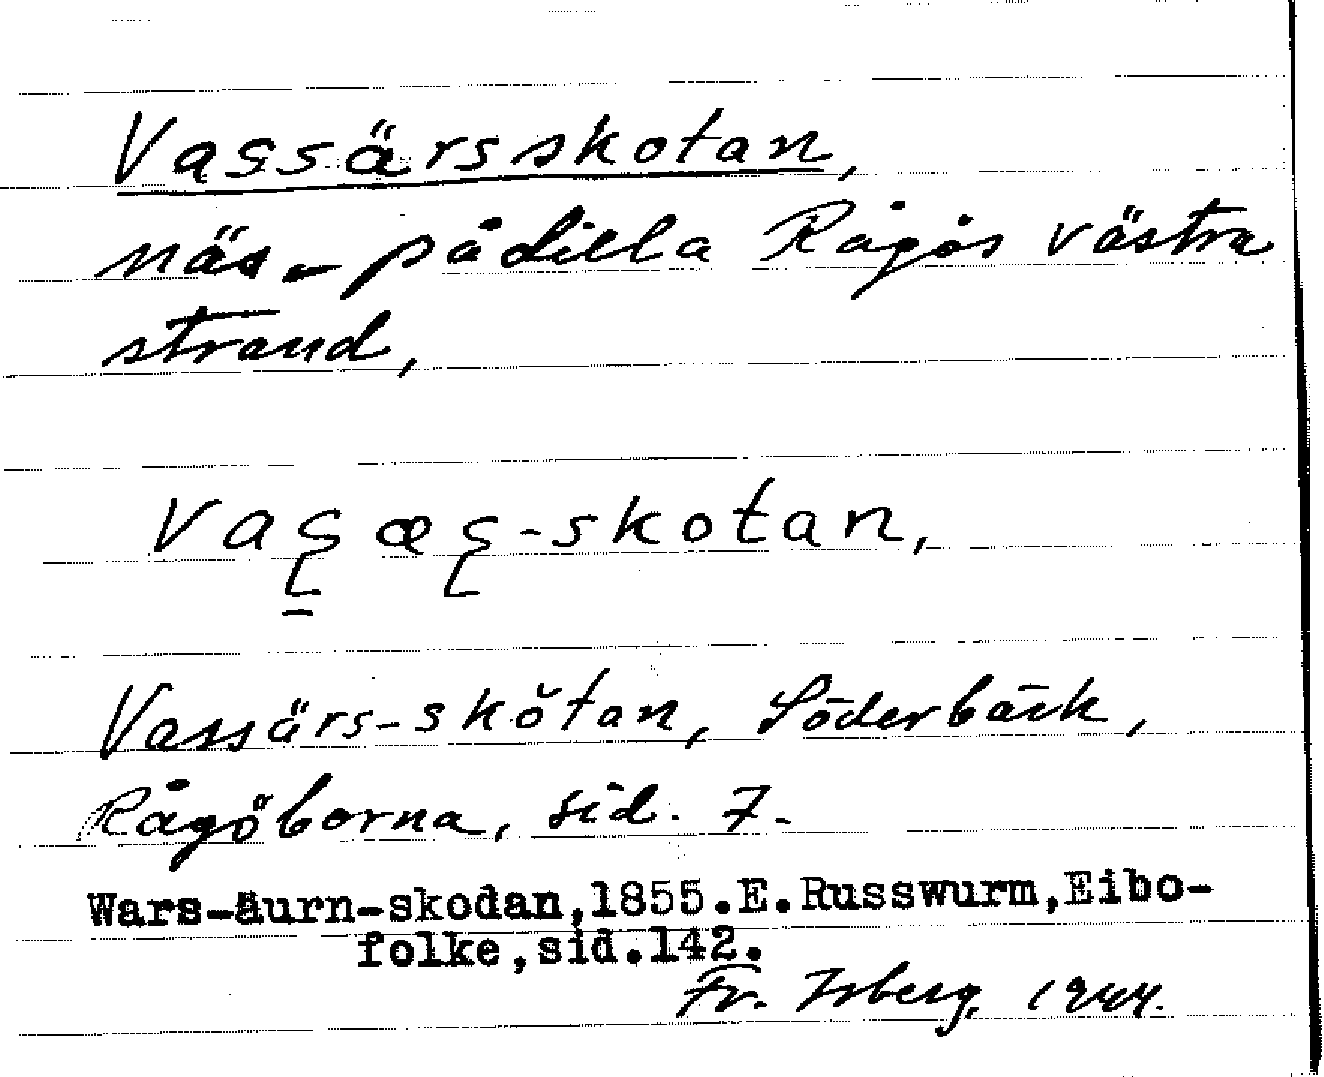 Vassärsskotan,
näs på Lilla Rågös västra
strand,
Vaς̱æς-skotan,
Vassärs-skŏtan, Söderbäck,
Rågöborna, sid. 7.
Wars-äurn-skodan,1855.E.Russwurm,Eibo-
folke,sid.142.
Fr. Isberg, 1944.